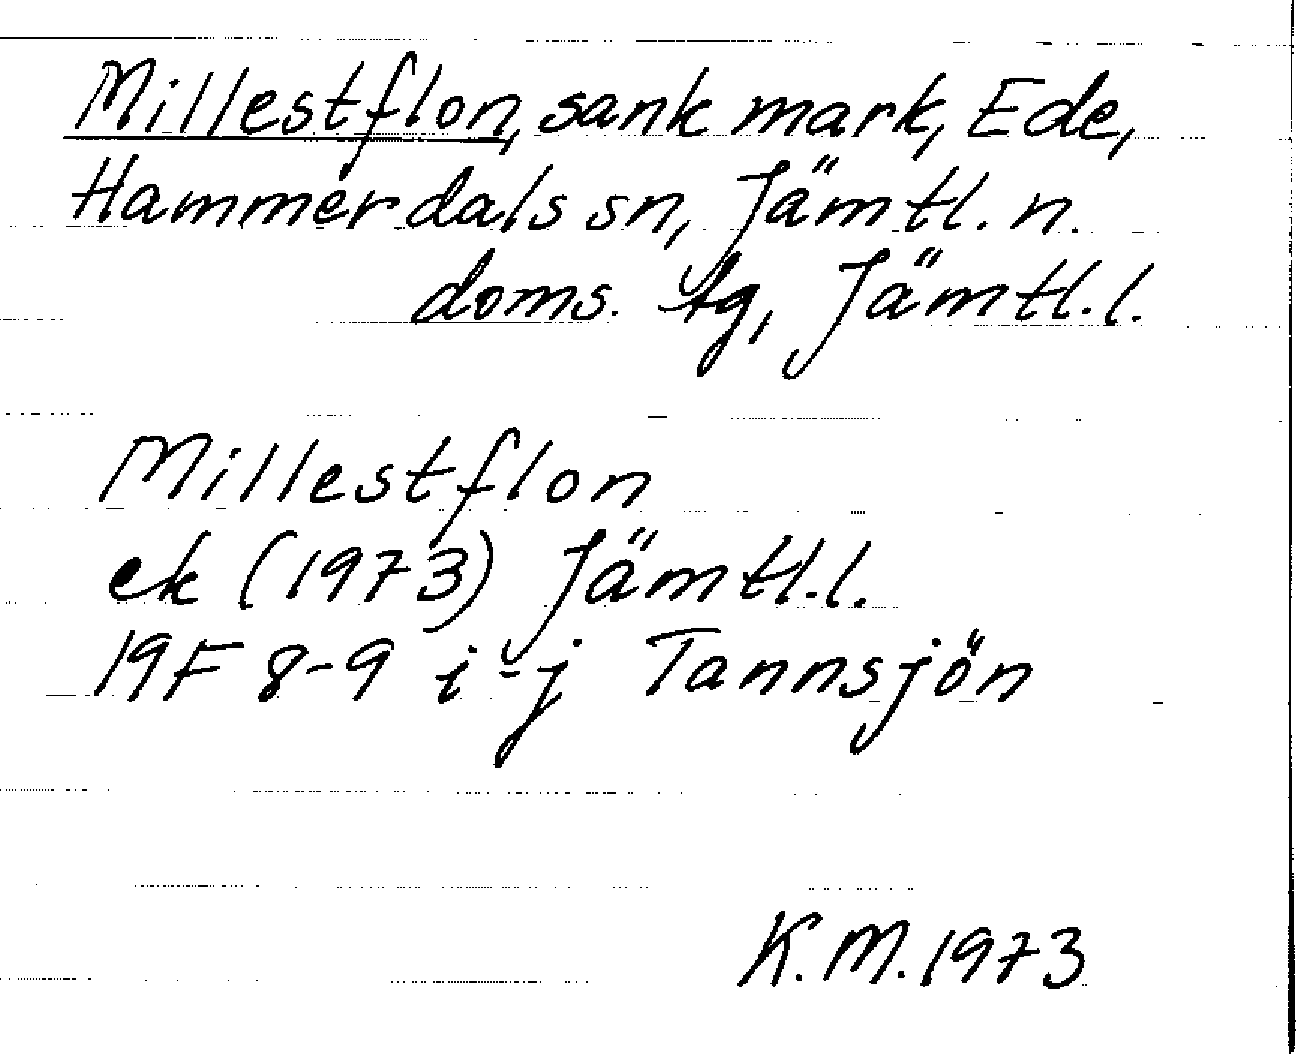 Millestflon, sank mark, Ede,
Hammerdals sn, Jämtl. n.
doms. tg, Jämtl. l.
Millestflon
ek (1973) Jämtl. l.
19F 8-9 i-j Tannsjön
K. M. 1973